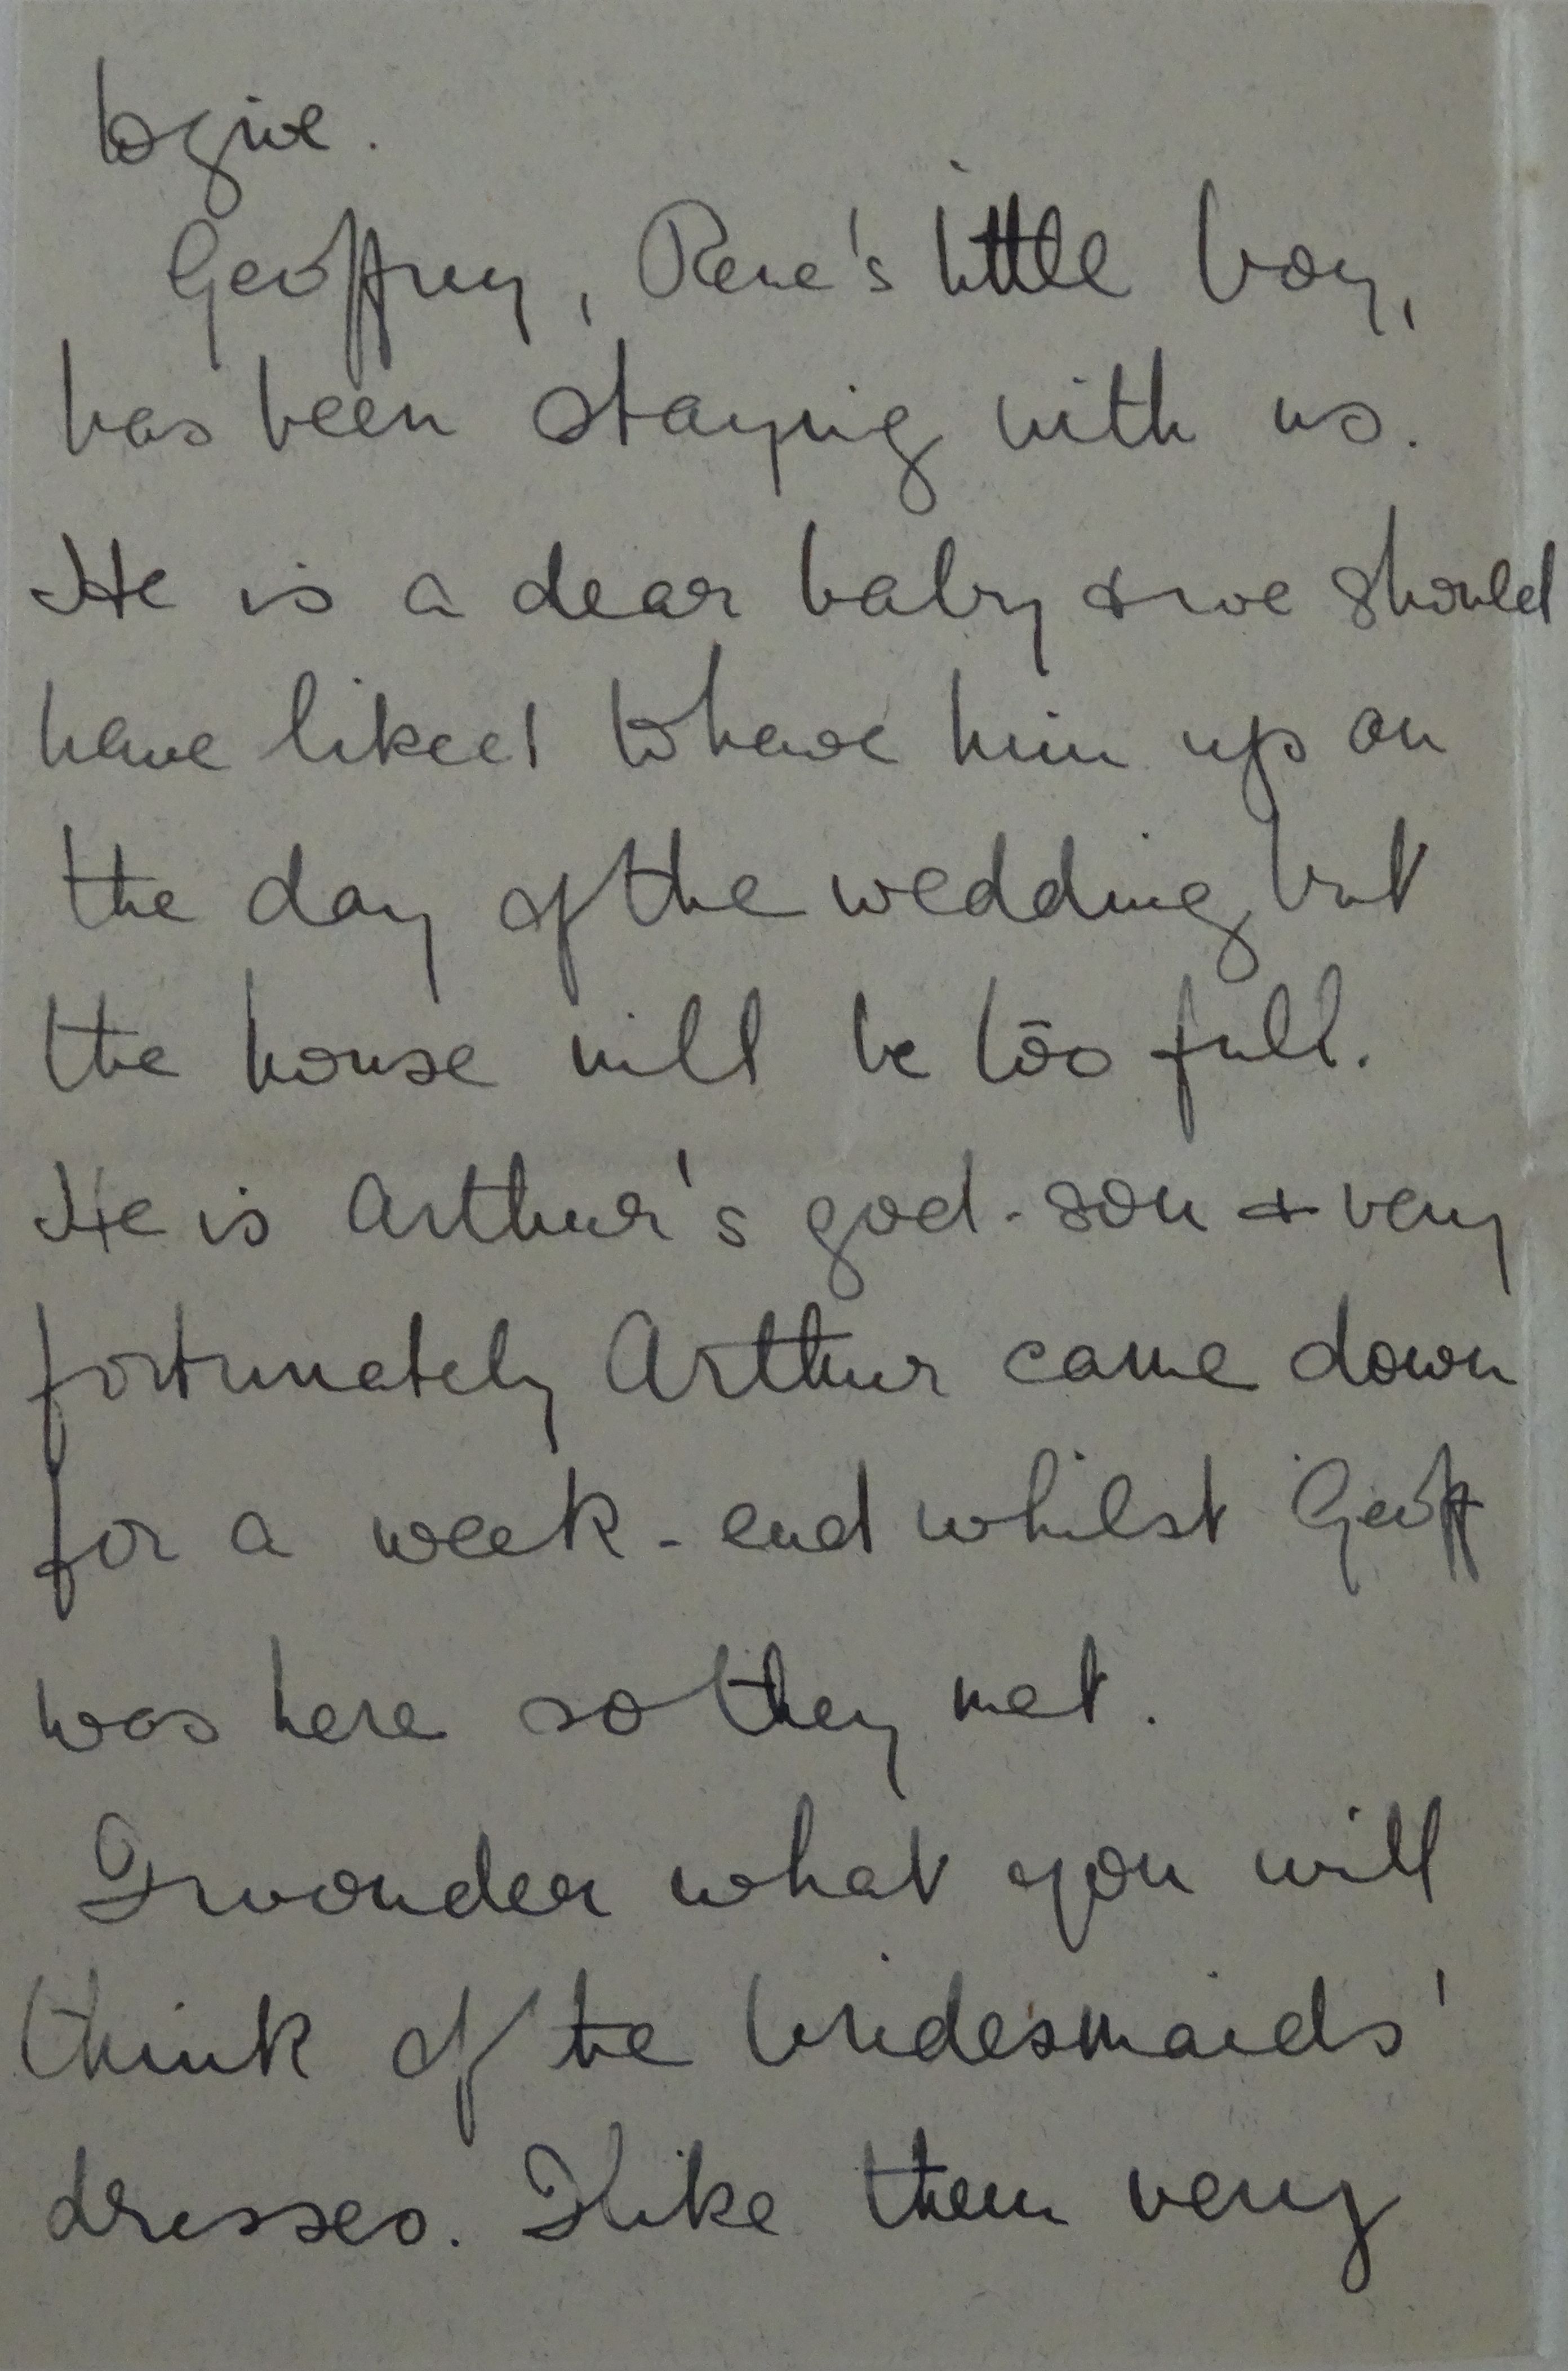 to give.
Geoffrey, Rene's little boy,
has been staying with us.
He is a dear baby & we should
have liked to have him up on
the day of the wedding but
the house will be too full.
He is Arthur's god-son & very
fortunately Arthur came down
for a week-end whilst Geoff
was here so they met.
I wonder what you will
think of the bridesmaids'
dresses. I like them very